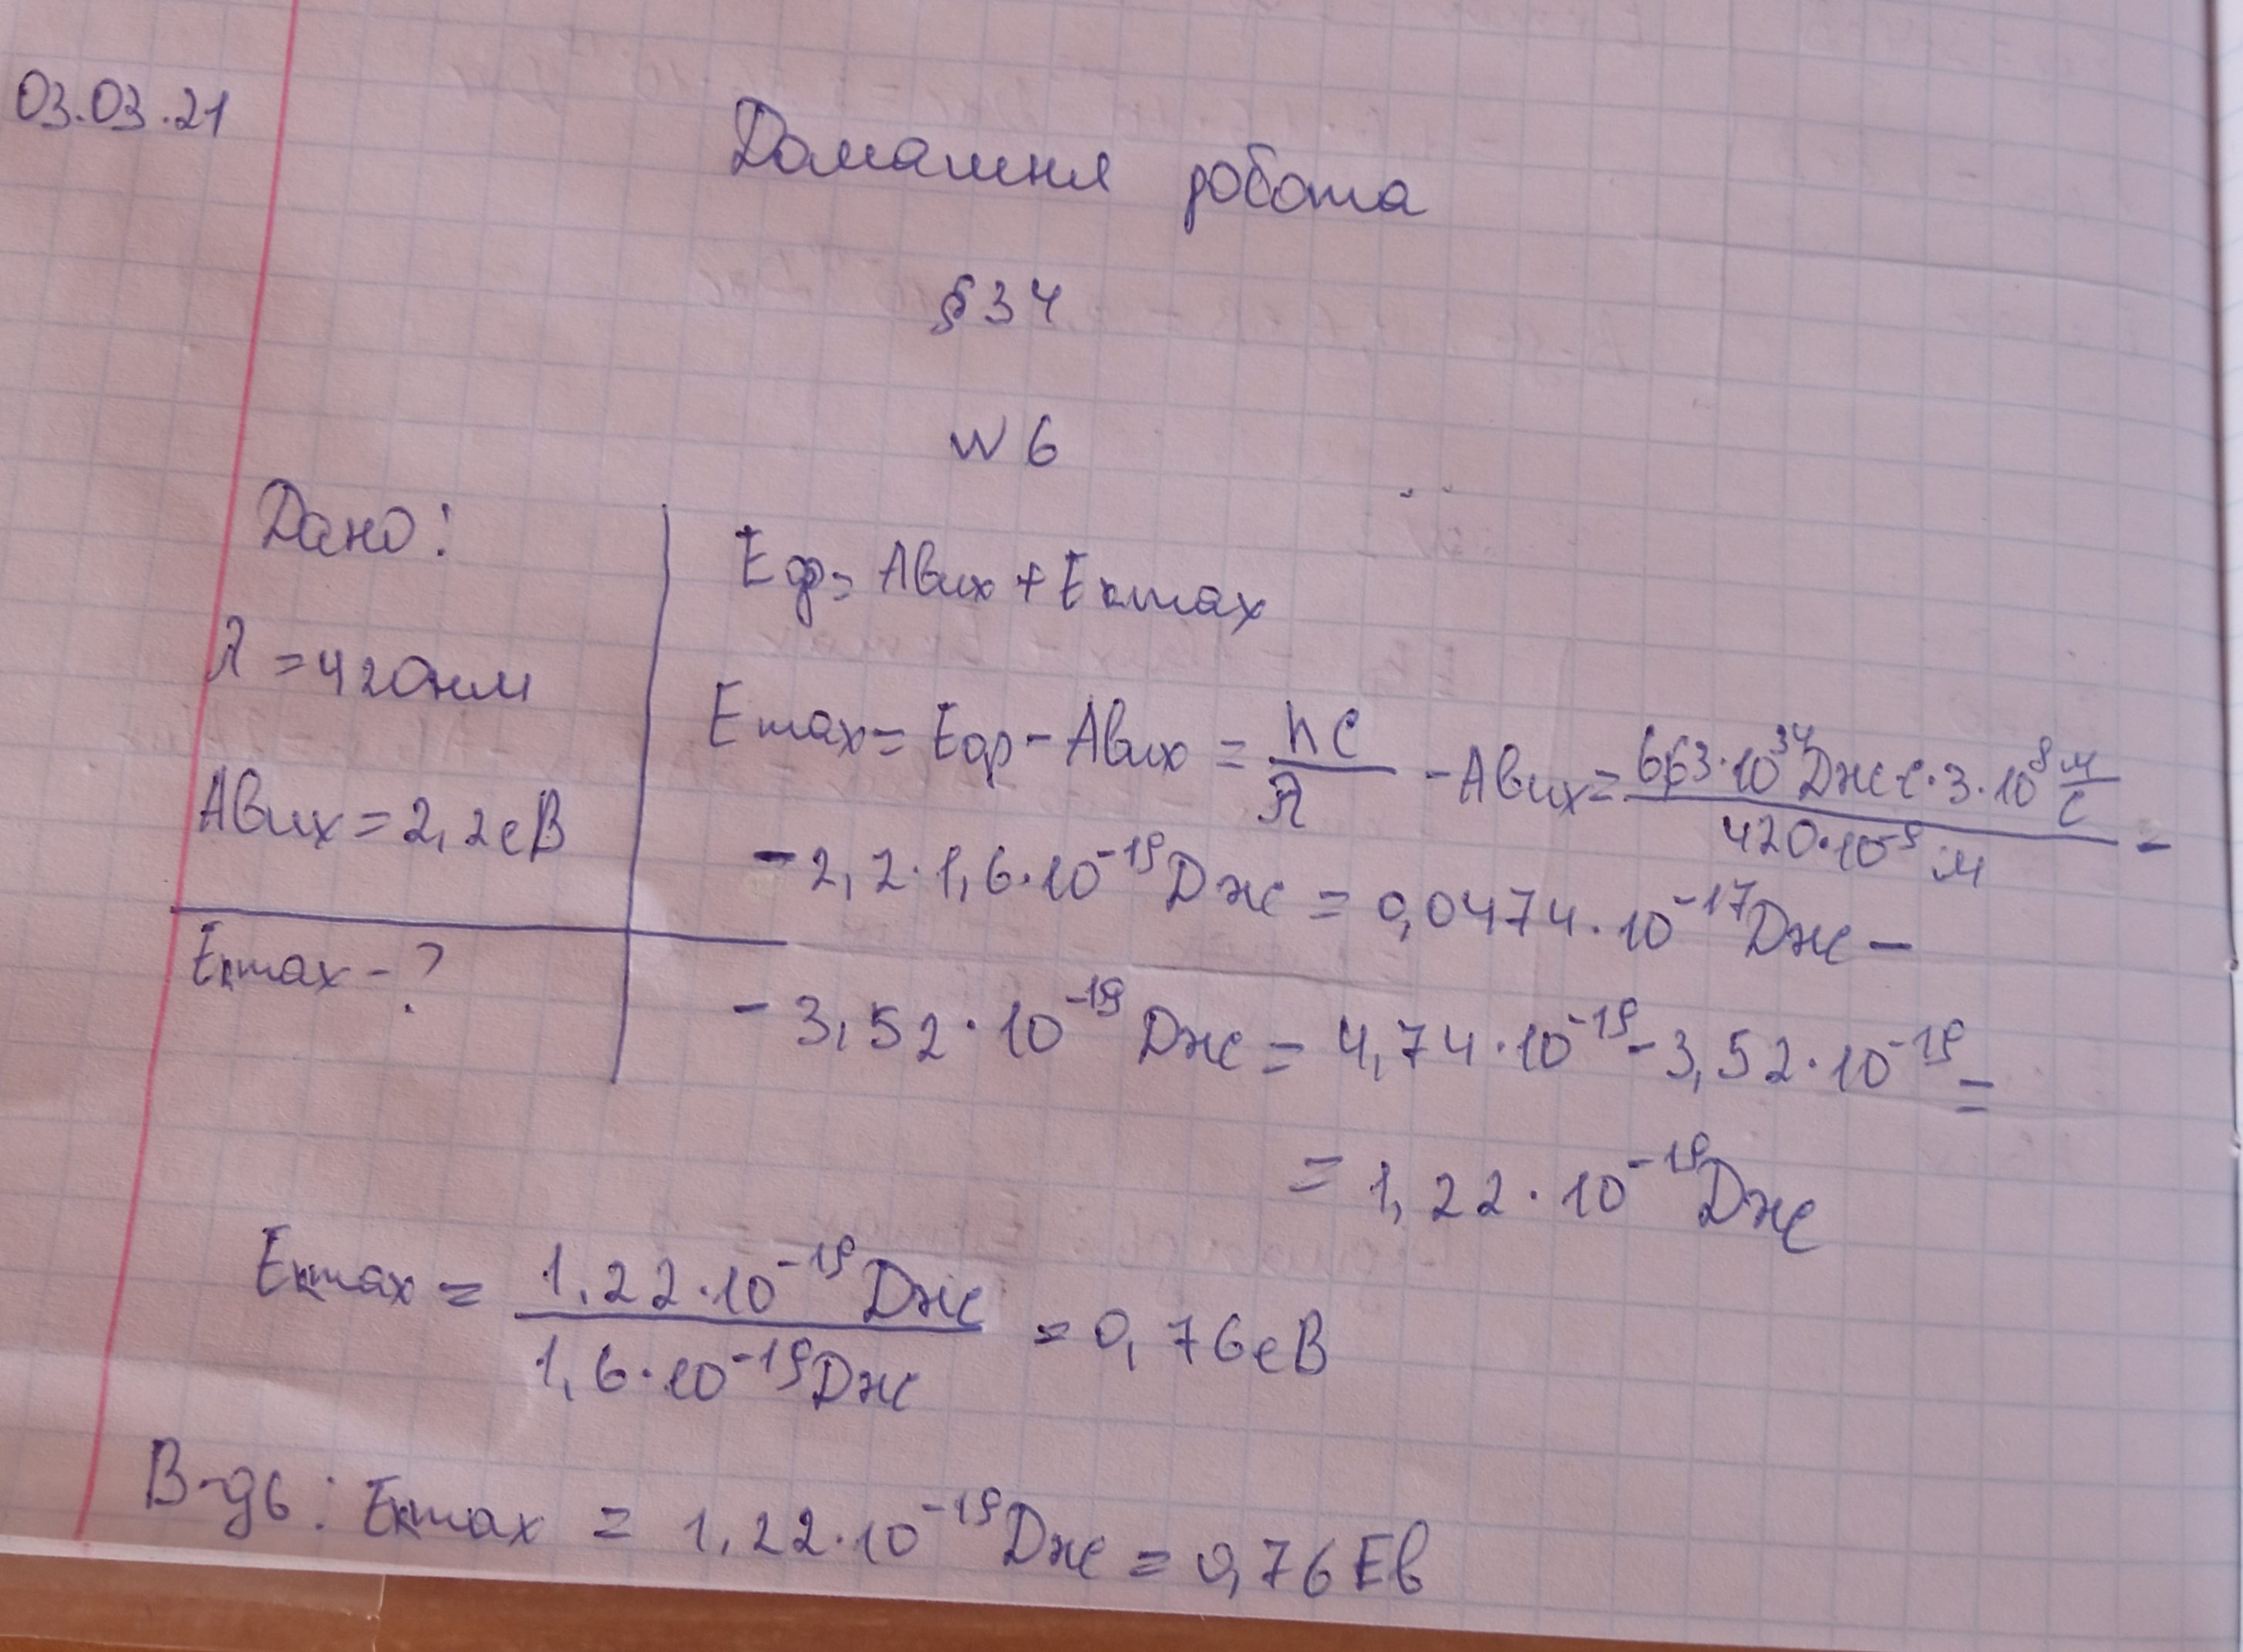 03.03.21
Домашня робота
§34
N6
Дано:
λ = 420нм
Aвих = 2,2еВ
Eкmax - ?
Eф = Aвих + Eкmax
Emax = Eф - Aвих = hc/λ - Aвих = 663·10³⁴Дж·с·3·10⁸ м/с / 420·10⁻⁹ м -
- 2,2·1,6·10⁻¹⁹Дж = 0,0474·10⁻¹⁷Дж -
- 3,52·10⁻¹⁹Дж = 4,74·10⁻¹⁹ - 3,52·10⁻¹⁹ =
= 1,22·10⁻¹⁹Дж
Eкmax = 1,22·10⁻¹⁹Дж / 1,6·10⁻¹⁹Дж = 0,76еВ
В-дь: Eкmax = 1,22·10⁻¹⁹Дж = 0,76 Ев